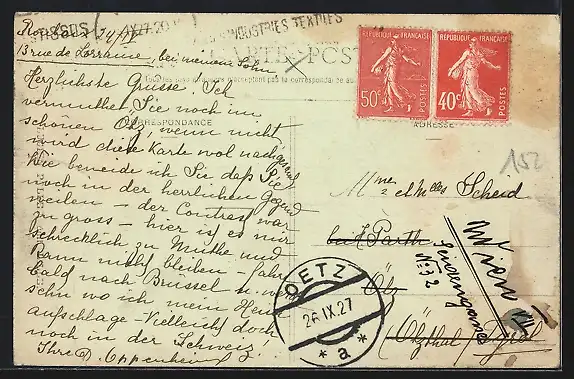 INDUSTRIES TEXTILES
CARTE POST
13 rue de Lorraine, bei meinem Sohn
Herzlichste Grüsse. Ich
vermuthet Sie noch im
schönen Ötz, wenn nicht
wird diese Karte wol
Wie beneide ich Sie daß Sie
noch in der herrlichen Gegend
weilen – der Contrast war
zu gross – hier ist es mir
schrecklich zu Muthe und
kann nicht bleiben – fahre
bald nach Brüssel u.
sehn wo ich mein Heim
aufschlage – Vielleicht doch
noch in der Schweiz.
Ihre D. Oppenheim
CORRESPONDANCE
ADRESSE
REPUBLIQUE FRANÇAISE
50c
POSTES
REPUBLIQUE FRANÇAISE
40c
POSTES
152
Mme et Mlles Scheid
bei Parth
Ötz
Ötzthal Tyrol
Wien VII
No 2
OETZ
26.IX.27
* a *